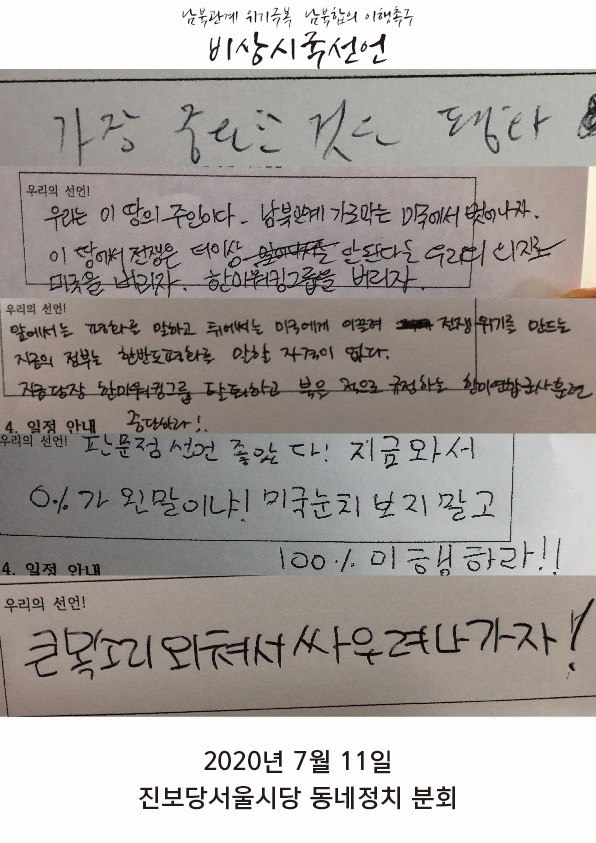 남북관계 위기극복 남북합의 이행촉구
비상시국선언
가장 중요한 것은 평화
우리의 선언!
우리는 이 땅의 주인이다. 남북관계 가로막는 미국에서 벗어나자.
이 땅에서 전쟁은 더이상 안된다는 우리의 의지로
미국을 버리자. 한미워킹그룹을 버리자.
우리의 선언!
앞에서는 평화를 말하고 뒤에서는 미국에게 이끌려 전쟁위기를 만드는
지금의 정부는 한반도평화를 말할 자격이 없다.
지금당장 한미워킹그룹 탈퇴하고 북을 적으로 규정하는 한미연합군사훈련
4. 일정 안내 중단하라!
우리의 선언! 판문점 선언 좋았다! 지금와서
0%가 왠말이냐! 미국눈치 보지말고
4. 일정 안내 100% 이행하라!!
우리의 선언!
큰목소리 외쳐서 싸우려나가자!
2020년 7월 11일
진보당서울시당 동네정치 분회